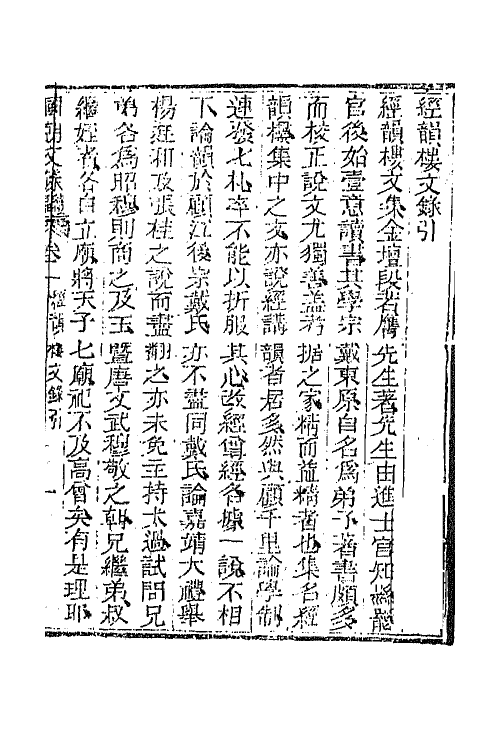 經韻樓文錄引
經韻樓文集金壇段若膺先生著先生由進士官知縣罷
官後始壹意讀書其學宗戴東原自名為弟子著書頗多
而校正說文尤獨善蓋考据之家精而益精者也集名經
韻樓集中之文亦說經講韻者居多然與顧千里論學制
連發七札率不能以折服其心改經曾經各據一說不相
下論韻於顧江後宗戴氏亦不盡同戴氏論嘉靖大禮舉
楊廷和及張桂之說而盡翻之亦未免主持太過試問兄
弟各為昭穆則商之及王暨唐文武穆敬之朝兄繼弟叔
繼姪者各自立廟將天子七廟祀不及高曾矣有是理耶
國朝文錄續編 卷一 經韻樓文錄引 一